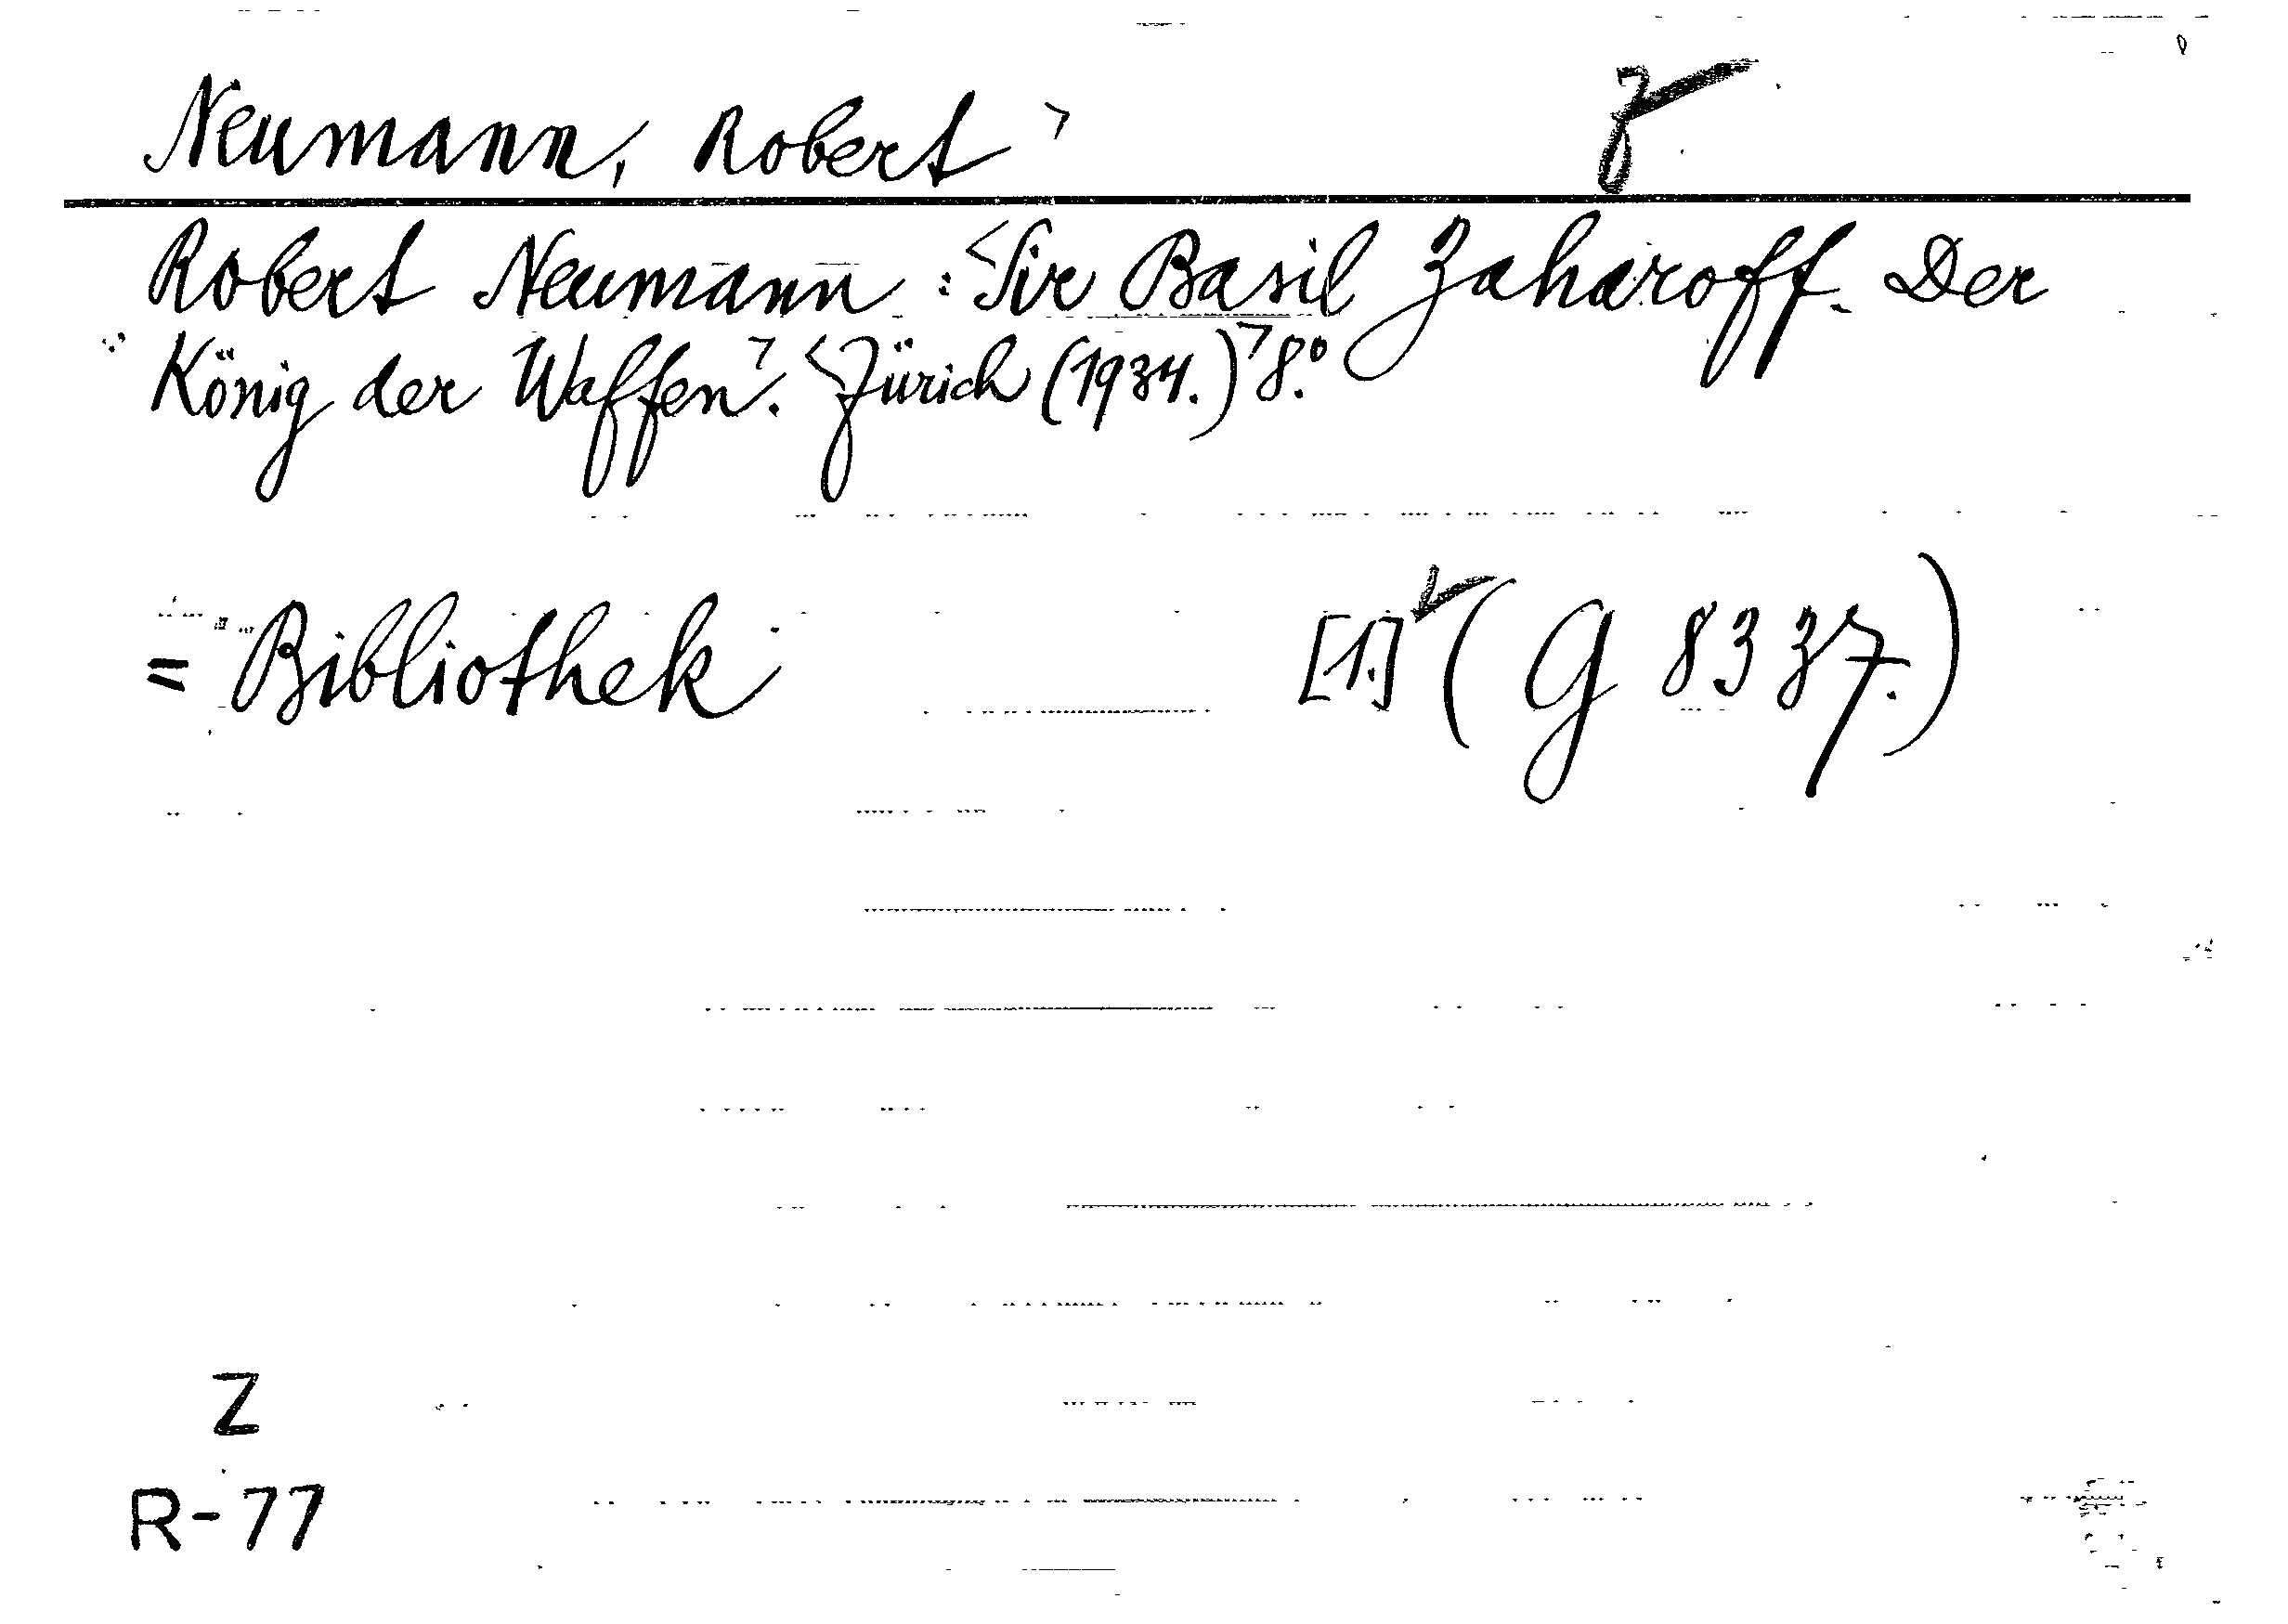 Neumann, Robert >
Robert Neumann : <Sir Basil Zaharoff. Der
König der Waffen>. <Zürich (1934.)> 8.°
= Bibliothek [1.] (G 8337.)
Z
R-77